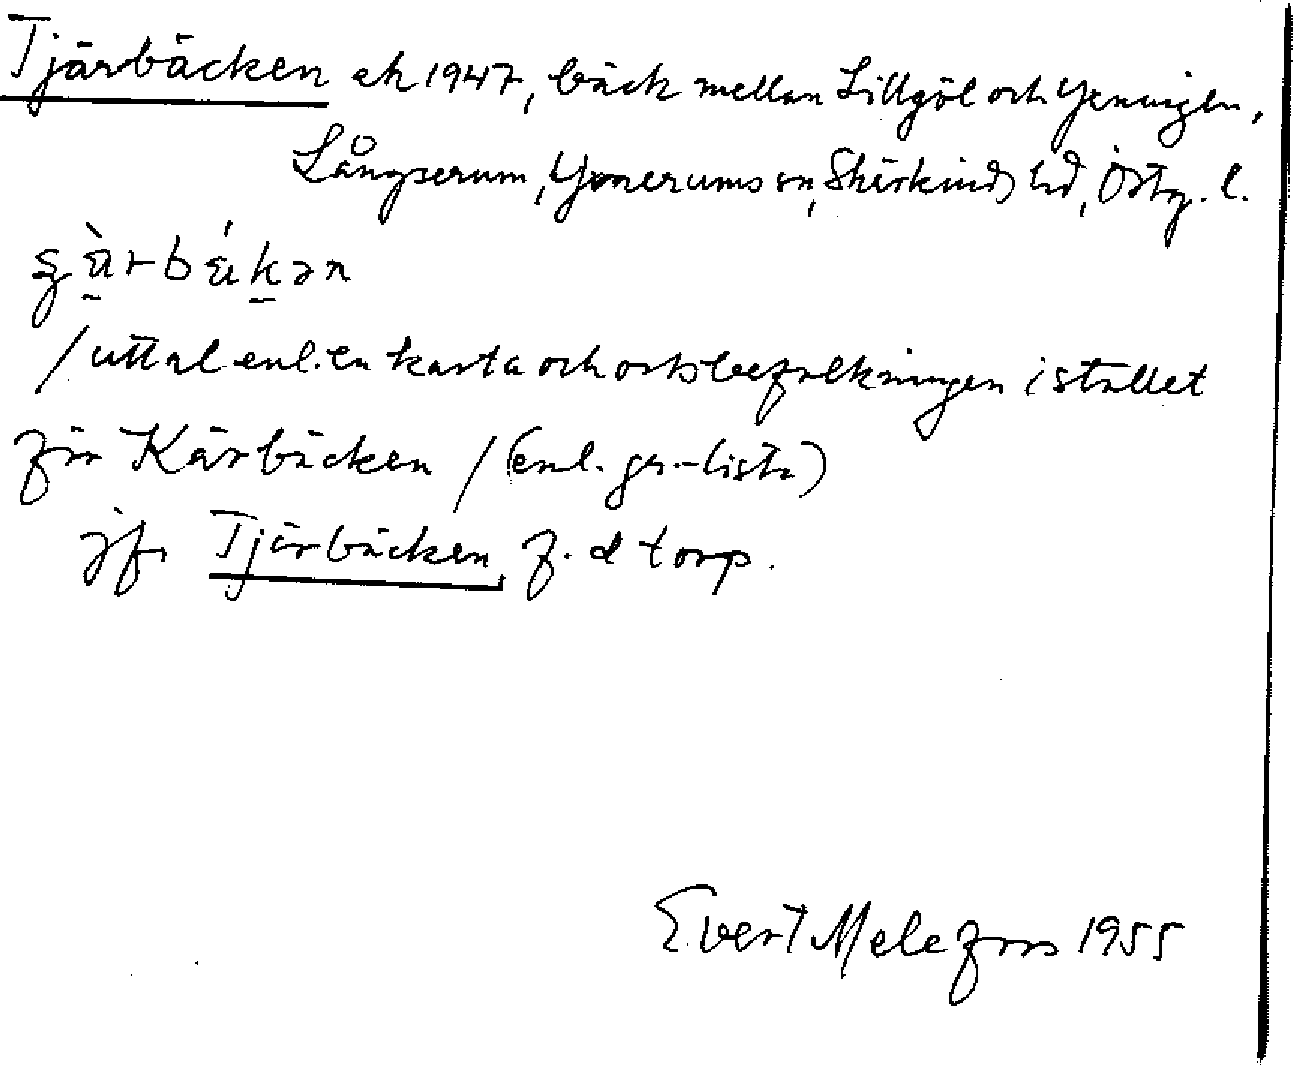 Tjärbäcken ek 1947, bäck mellan Lillgöl och Yxningen,
Långserum, Yxnerums sn, Skärkinds hd, Östg. l.
/uttal enl. en karta och ortsbefolkningen i stället
för Kärbäcken / (enl. gr-lista)
jfr Tjärbäcken, f. d torp.
Evert Melefors 1955